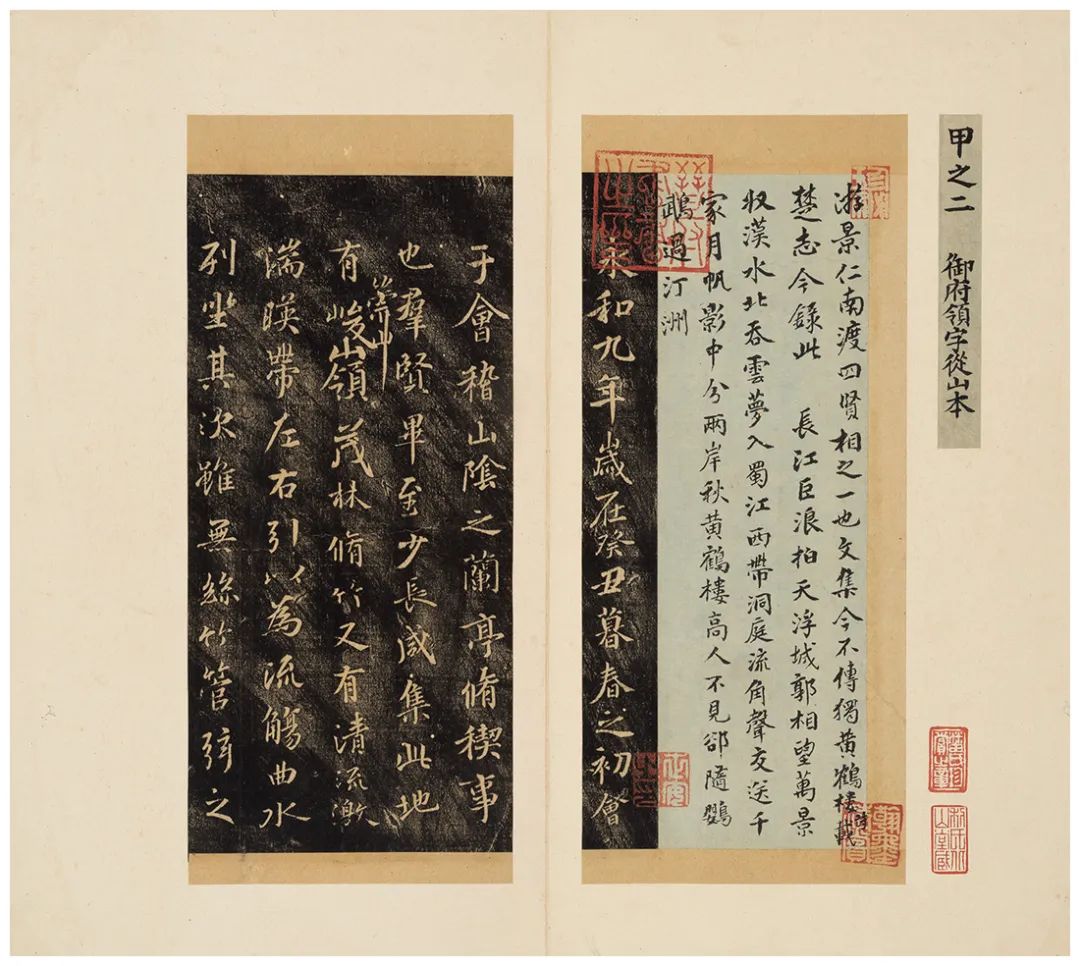 甲之二 御府領字從山本
游景仁南渡四賢相之一也文集今不傳獨黃鶴樓詩載
楚志今錄此 長江巨浪拍天浮城郭相望萬景
収漢水北吞雲夢入蜀江西帶洞庭流角聲交送千
家月帆影中分兩岸秋黃鶴樓高人不見卻隨鸚
鵡過汀洲
永和九年歲在癸丑暮春之初會
于會稽山陰之蘭亭脩稧事
也羣賢畢至少長咸集此地
有崇山峻領茂林脩竹又有清流激
湍暎帶左右引以為流觴曲水
列坐其次雖無絲竹管弦之